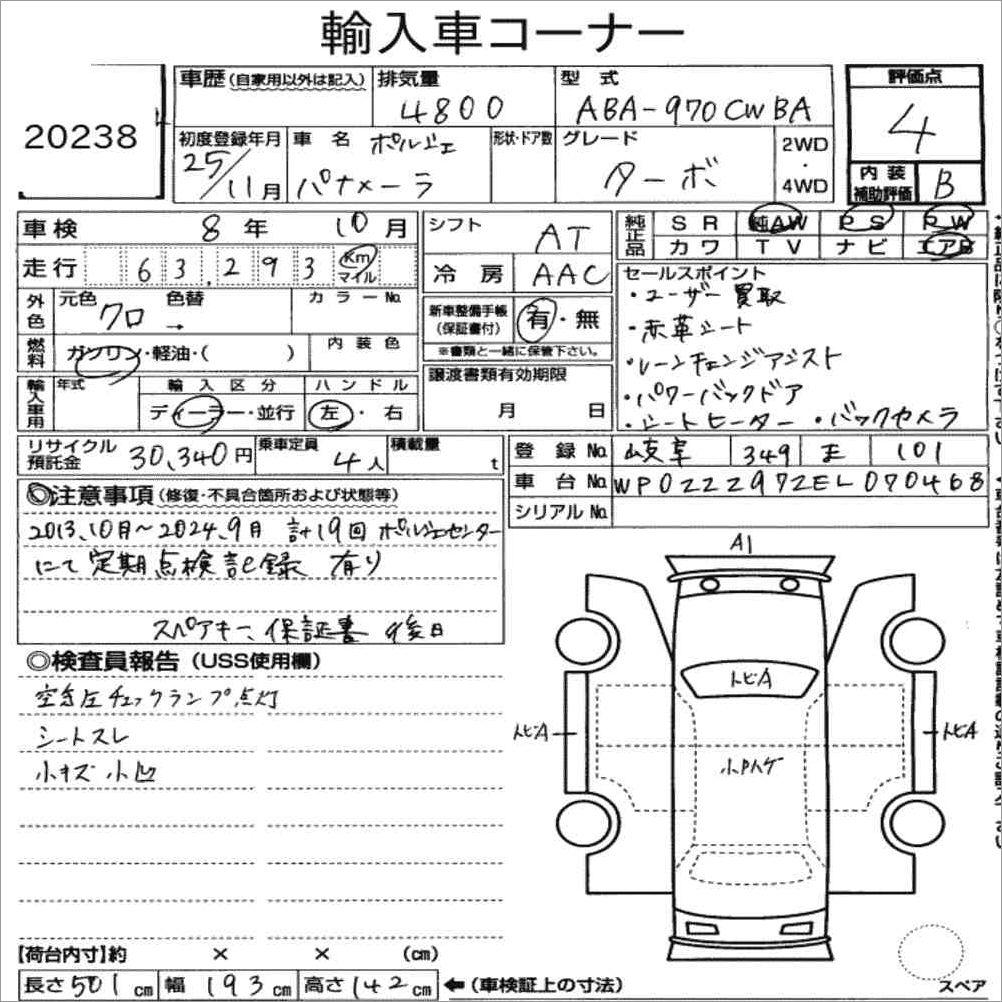 輸入車コーナー
20238
車歴(自家用以外は記入) 排気量 型式 評価点
4800 ABA-970CWBA 4
初度登録年月 車名 ポルシェ 形状・ドア数 グレード 2WD・4WD
25/11月 パナメーラ ターボ
内装補助評価 B
車検 8年 10月 シフト AT
純正品 SR 純AW PS PW
カワ TV ナビ エアB
走行 63,293 Km マイル 冷房 AAC
セールスポイント
・ユーザー買取
・赤革シート
・レーンチェンジアシスト
・パワーバックドア
・シートヒーター ・バックカメラ
外色 元色 クロ 色替 → カラーNo.
新車整備手帳(保証書付) 有・無
※書類と一緒に保管下さい。
燃料 ガソリン・軽油・( ) 内装色
譲渡書類有効期限
月 日
輸入車用 年式 輸入区分 ハンドル
ディーラー・並行 左・右
リサイクル預託金 30,340円 乗車定員 4人 積載量 t
登録No. 岐阜 349 ま 101
車台No. WP0ZZZ97ZEL070468
シリアルNo.
◎注意事項(修復・不具合箇所および状態等)
2013,10月~2024,9月 計19回 ポルシェセンター
にて定期点検記録 有り
スペアキー、保証書 後日
◎検査員報告(USS使用欄)
空気圧チェックランプ点灯
シートスレ
小キズ小凹
A1
トビA
トビA トビA
小Pハゲ
【荷台内寸】約 × × (cm)
長さ501cm 幅193cm 高さ142cm ←(車検証上の寸法)
スペア